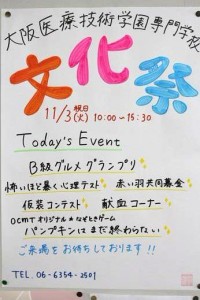 大阪医療技術学園専門学校
文化祭
11/3(火)祝日 10:00~15:30
Today's Event
B級グルメグランプリ
怖いほど暴く心理テスト 赤い羽共同募金
仮装コンテスト 献血コーナー
OCMTオリジナル★なぞときゲーム
パンプキンはまだ終わらない
ご来場をお待ちしております!!
TEL.06-6354-2501